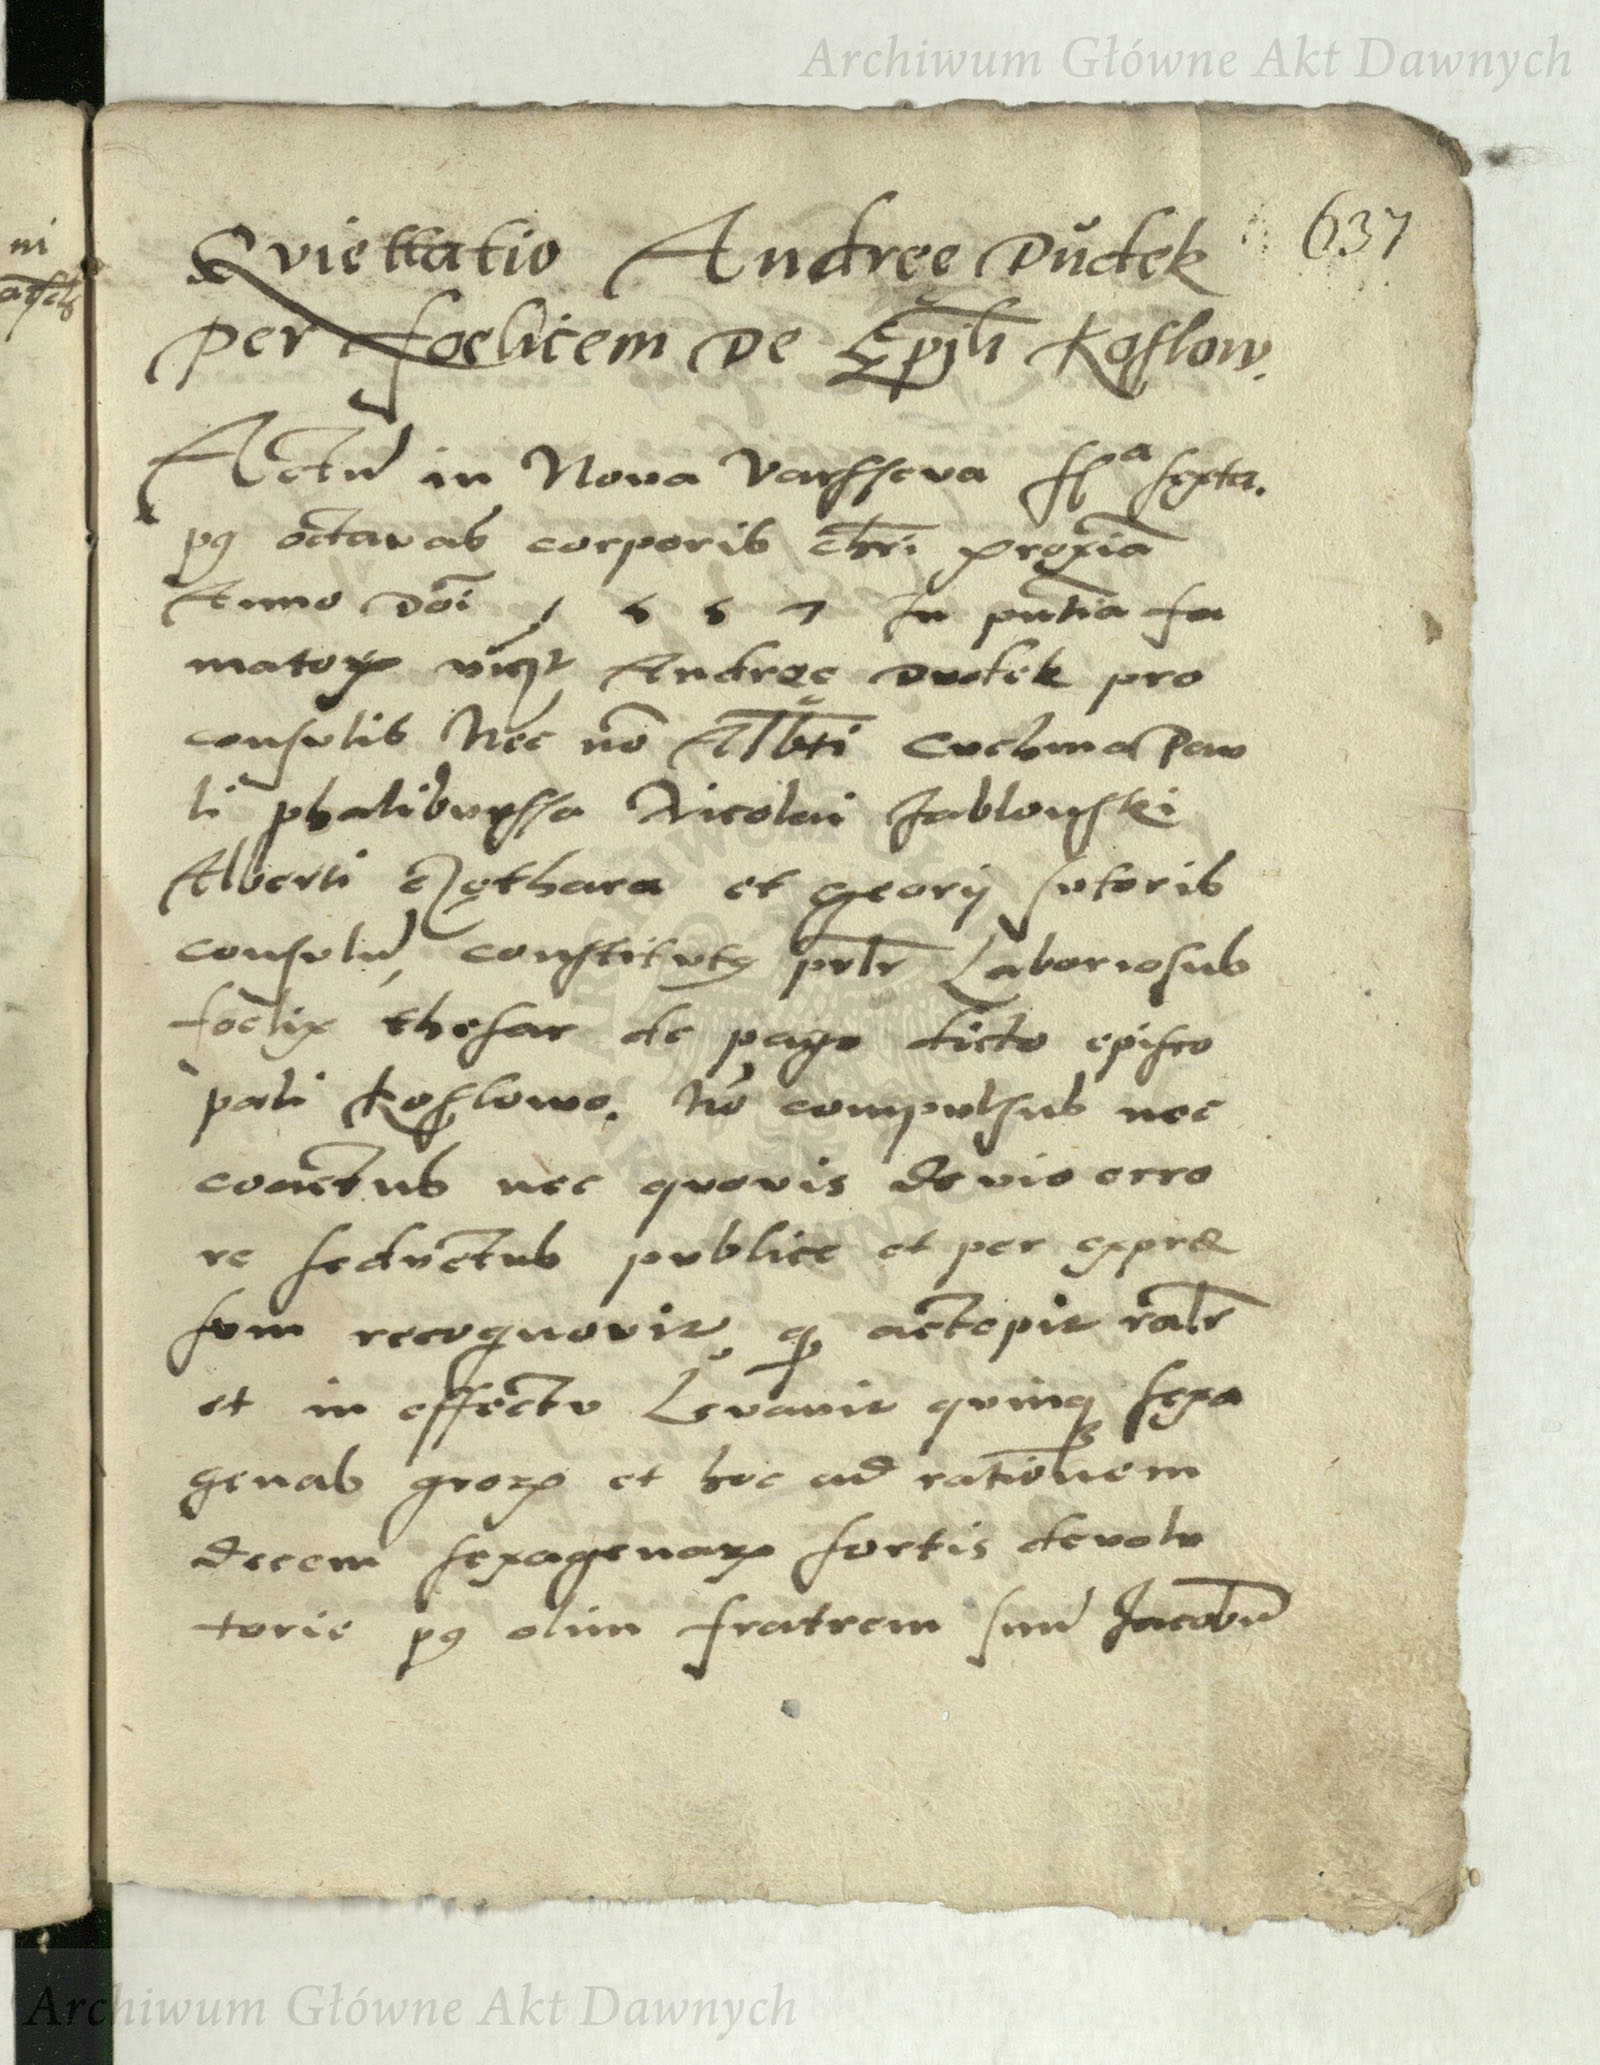 Archiwum Główne Akt Dawnych
637
Qviettatio Andree Dudek
per foelicem De Ep̄li Koslow.
Actū in Nova Varsseva fſͣ sexta.
pꝰ octavas corporis chr̄i proxīa
Anno Dōi 1557 In pn̄tia fa
matoꝝ Andree Dvdek pro
consulis Nec nō Alb̄ti Cvchma Pav
li phalibvssa Nicolai Jablonski
Alberti et georij sutoris
consulū, constitutꝰ pr̄lr Laboriosus
foelix thesar de pago dicto episco
pali Koslowo. Nō compvlsus nec
coactus nec qvovis devio erro
re sedvctus pvblice et per expres
svm recognovit, qͦ actepit rālr
et in effectv Levavit qvinqꝫ sexa
genas groꝝ et hoc ad rationem
Decem sexagenaꝝ sortis devolv
torie pꝰ olim fratrem suū Jacobū
Archiwum Główne Akt Dawnych